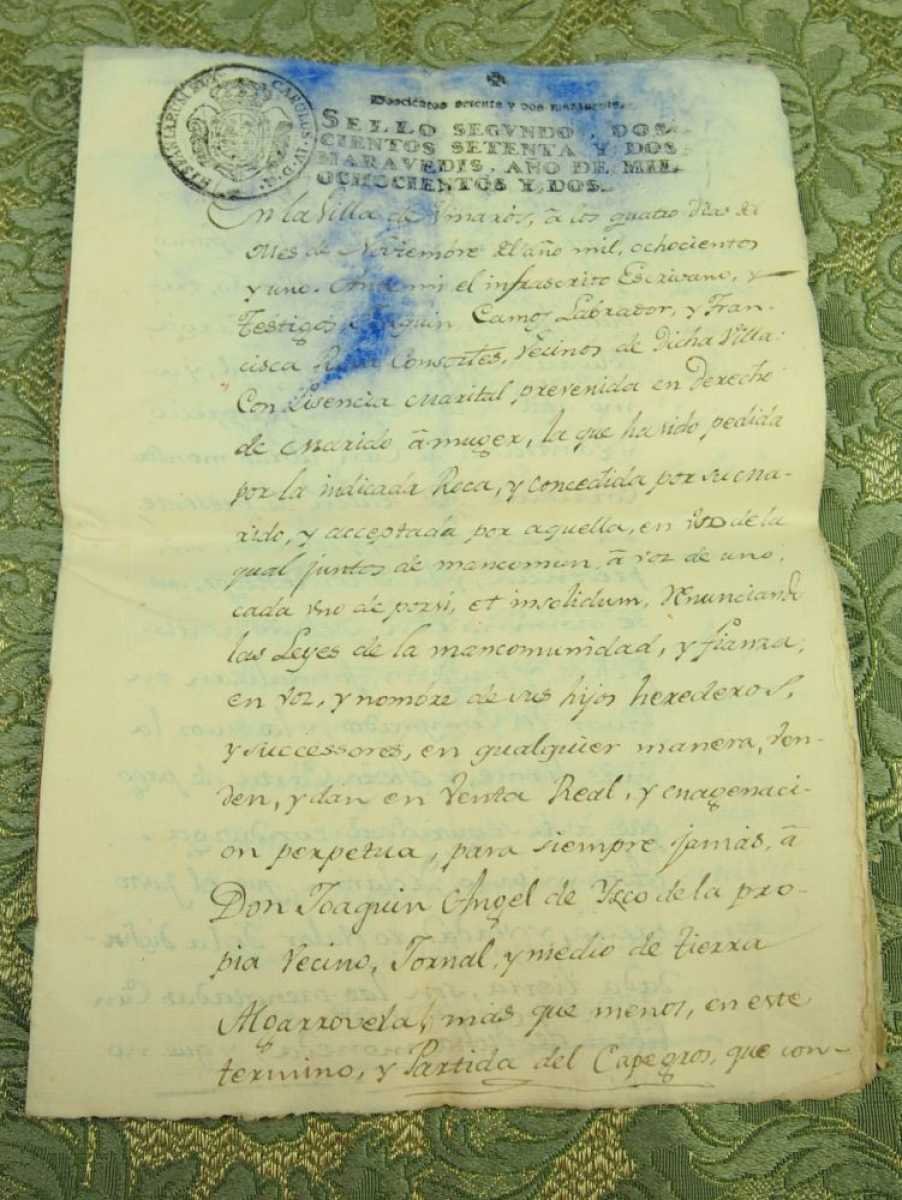 HISPANIARUM REX CAROLUS IV D G
Doscientos setenta y dos maravedis.
SELLO SEGVNDO, DOS-
CIENTOS SETENTA Y DOS
MARAVEDIS, AÑO DE MIL
OCHOCIENTOS Y DOS.
En la Villa de Vinaròs, â los quatro Dias del
Mes de Noviembre del año mil, ochocientos
y uno. Ante mi el infrascrito Escrivano, y
Testigos Joaquin Camos Labrador, y Fran-
cisca Consortes, Vecinos de Dicha Villa:
Con Lisencia Marital, prevenida en Derecho
de Marido â muger, la que ha sido pedida
por la indicada Roca, y concedida por su ma-
rido, y acceptada por aquella, en uso de la
qual juntos de mancomun, â voz de uno,
cada uno de porsi, et insolidum, Renunciando
las Leyes de la mancomunidad, y fianza;
en voz, y nombre de sus hijos herederos,
y successores, en qualquier manera, Ven-
den, y dan en Venta Real, y enagenaci-
on perpetua, para siempre jamàs, â
Don Joaquin Angel de de la pro-
pia Vecino, Jornal, y medio de tierra
Algarrovela, mas que menos, en este
termino, y Partida del Capegros, que con-